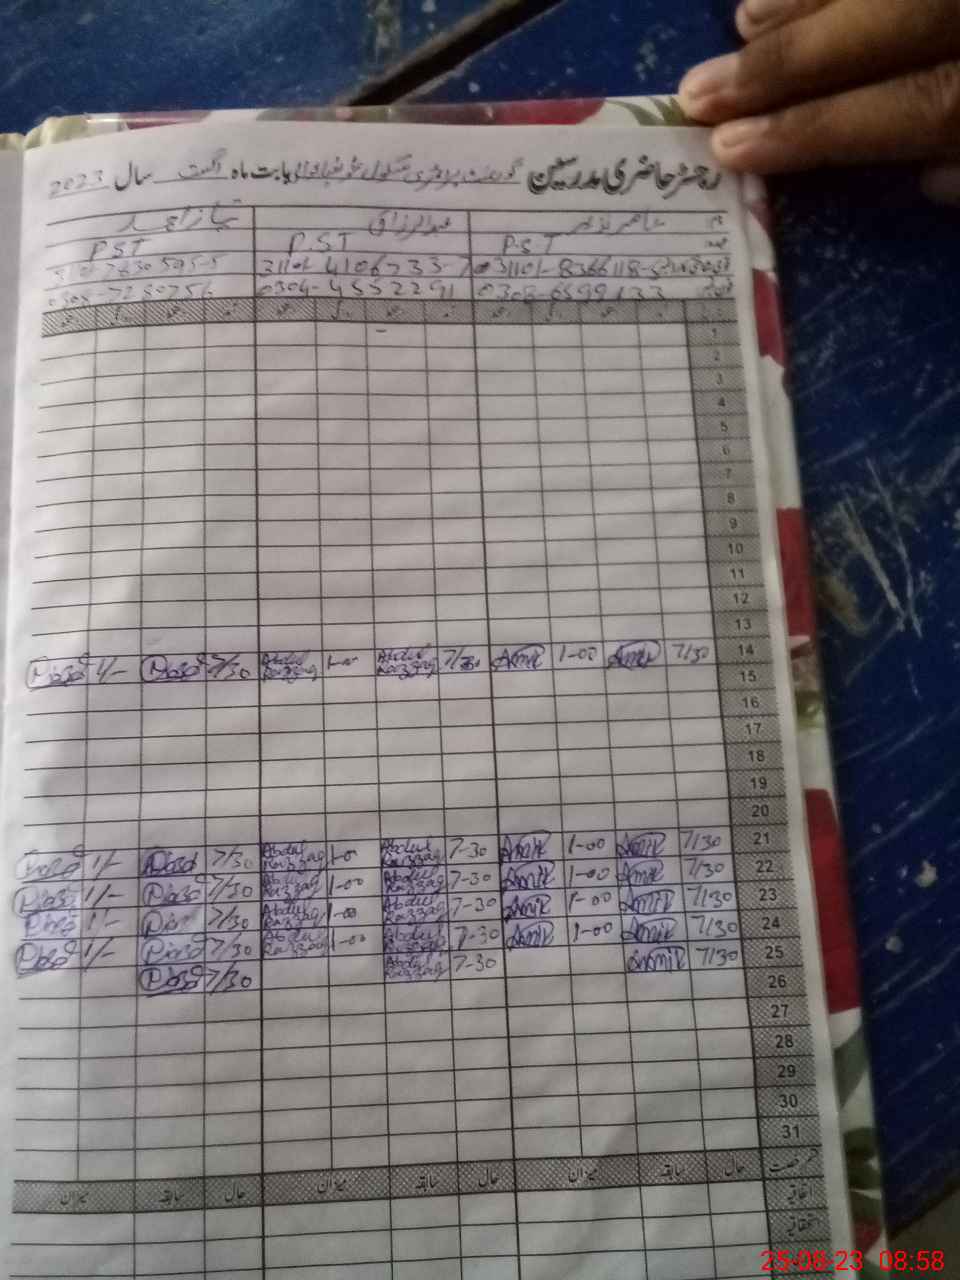 رجسٹر حاضری مدرسین گورنمنٹ پرائمری سکول بابت ماہ اگست سال 2023
عامر نذیر عبدالرزاق نیاز احمد
P.S.T P.S.T PST
31101-8366118-5 31101-4106733-7
0308-6599133 0304-4552291 0308-7280756
1
2
3
4
5
6
7
8
9
10
11
12
13
14 7/30 Amir 1-00 Amir 7/30 Abdul Razzaq 1-00 Abdul Razzaq 7/30 1/-
15
16
17
18
19
20
21 7/30 Amir 1-00 Amir 7-30 Abdul Razzaq 1-00 Abdul Razzaq 7/30 1/-
22 7/30 Amir 1-00 Amir 7-30 Abdul Razzaq 1-00 Abdul Razzaq 7/30 1/-
23 7/30 Amir 1-00 Amir 7-30 Abdul Razzaq 1-00 Abdul Razzaq 7/30 1/-
24 7/30 Amir 1-00 Amir 7-30 Abdul Razzaq 1-00 Abdul Razzaq 7/30 1/-
25 7/30 Amir 7-30 Abdul Razzaq 7/30
26
27
28
29
30
31
قسم رخصت حال سابقہ میزان حال سابقہ میزان حال سابقہ میزان
اتفاقیہ
استحقاقیہ
25-08-23 08:58